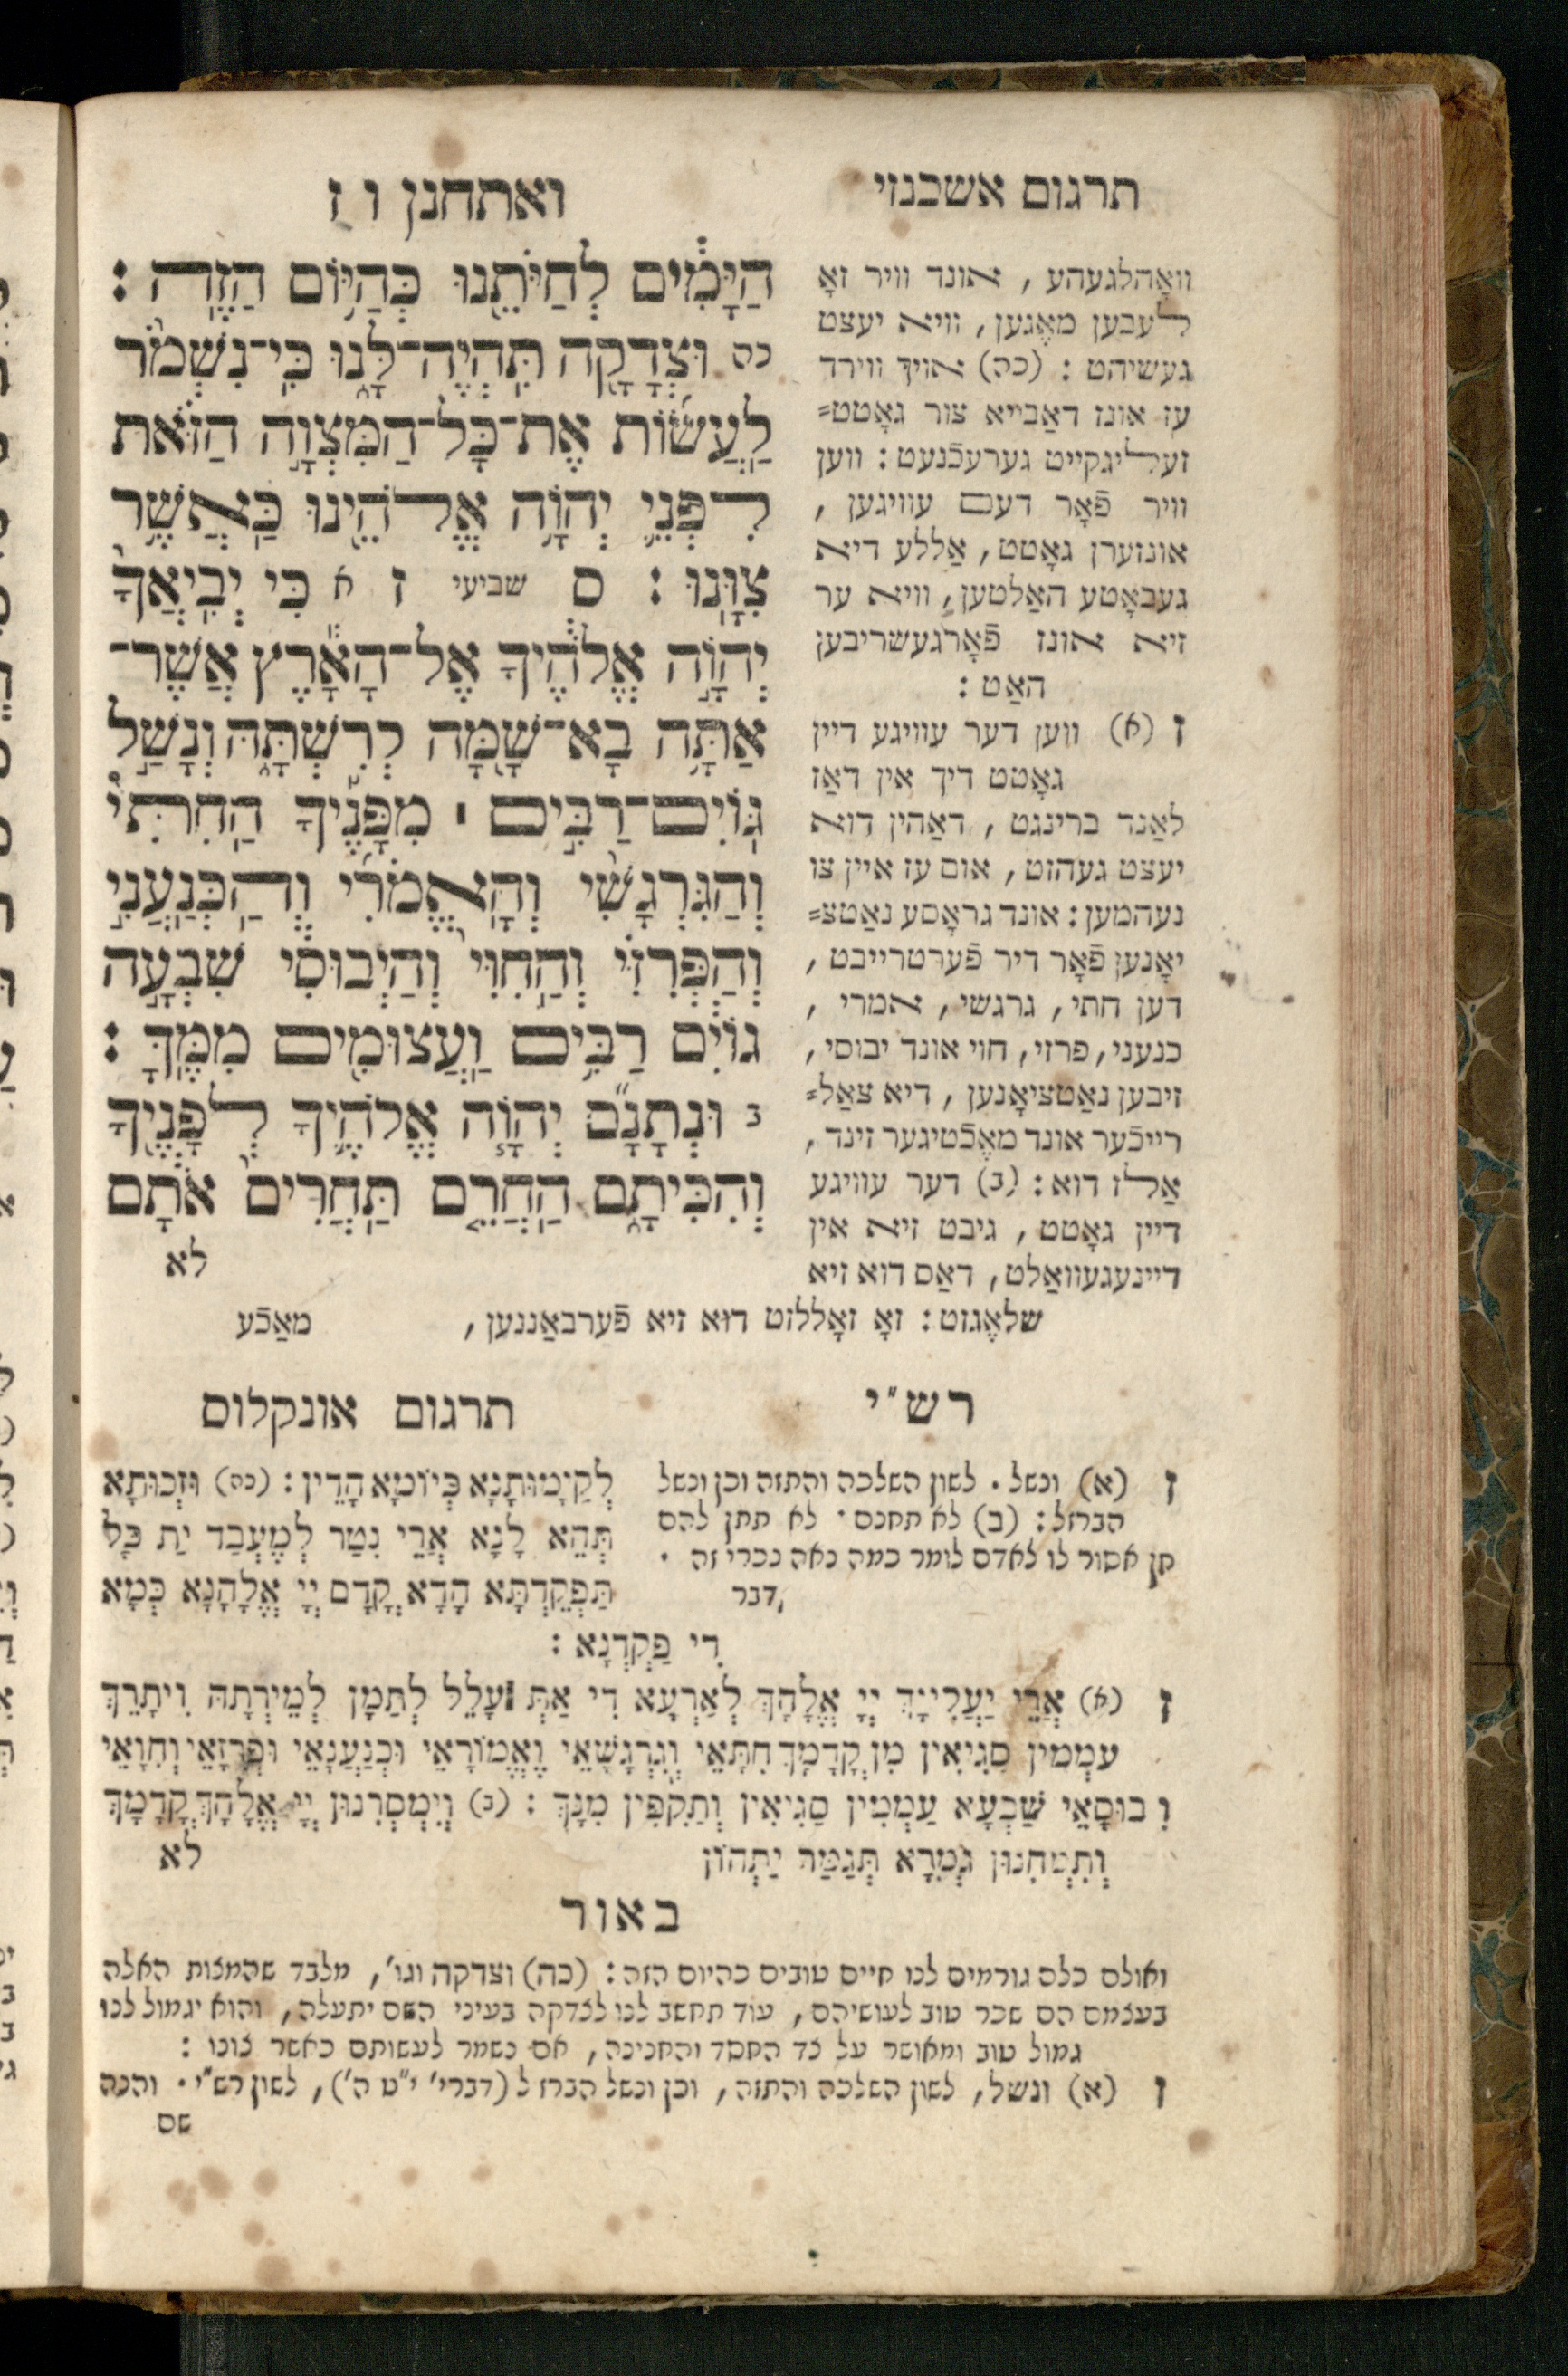 תרגום אשכנזי
ואתחנן ו ז
הַיָּמִ֔ים לְחַיֹּתֵ֖נוּ כְּהַיּ֥וֹם הַזֶּֽה :
כה וּצְדָקָ֖ה תִּֽהְיֶה־לָּ֑נוּ כִּֽי־נִשְׁמֹ֨ר
לַעֲשׂ֜וֹת אֶת־כָּל־הַמִּצְוָ֣ה הַזֹּ֗את
לִפְנֵ֛י יְהוָ֥ה אֱלֹהֵ֖ינוּ כַּאֲשֶׁ֥ר
צִוָּֽנוּ : ס שביעי ז א כִּ֤י יְבִֽיאֲךָ֙
יְהוָ֣ה אֱלֹהֶ֔יךָ אֶל־הָאָ֕רֶץ אֲשֶׁר־
אַתָּ֥ה בָא־שָׁ֖מָּה לְרִשְׁתָּ֑הּ וְנָשַׁ֣ל
גּֽוֹיִם־רַבִּ֣ים ׀ מִפָּנֶ֡יךָ הַֽחִתִּי֩
וְהַגִּרְגָּשִׁ֨י וְהָאֱמֹרִ֜י וְהַכְּנַעֲנִ֣י
וְהַפְּרִזִּ֗י וְהַֽחִוִּי֙ וְהַיְבוּסִ֔י שִׁבְעָ֣ה
גוֹיִ֔ם רַבִּ֥ים וַעֲצוּמִ֖ים מִמֶּֽךָּ :
ב וּנְתָנָ֞ם יְהוָ֧ה אֱלֹהֶ֛יךָ לְפָנֶ֖יךָ
וְהִכִּיתָ֑ם הַחֲרֵ֤ם תַּחֲרִים֙ אֹתָ֔ם
לא
וואָהלגעהע , אונד וויר זאָ
לעבען מאֶגען , וויא יעצט
געשיהט : (כה) אויך ווירד
עז אונז דאַבייא צור גאָטט=
זעליגקייט גערעכֿנעט : ווען
וויר פֿאָר דעם עוויגען ,
אונזערן גאָטט , אַללע דיא
געבאָטע האַלטען , וויא ער
זיא אונז פֿאָרגעשריבען
האַט :
ז (א) ווען דער עוויגע דיין
גאָטט דיך אין דאַז
לאַנד ברינגט , דאַהין דוא
יעצט געהזט , אום עז איין צו
נעהמען : אונד גראָסע נאַטצ=
יאָנען פֿאָר דיר פֿערטרייבט ,
דען חתי , גרגשי , אמרי ,
כנעני , פרזי , חוי אונד יבוסי ,
זיבען נאַטציאָנען , דיא צאַל=
רייכֿער אונד מאֶכֿטיגער זינד ,
אַלז דוא : (ב) דער עוויגע
דיין גאָטט , גיבט זיא אין
דיינעגעוואַלט , דאַס דוא זיא
שלאֶגזט : זאָ זאָללזט דוא זיא פֿערבאַננען , מאַכֿע
רש"י
ז (א) ונשל . לשון השלכה והתזה וכן ונשל
הברזל : (ב) לא תחנם . לא תתן להם
חן אסור לו לאדם לומר כמה נאה נכרי זה .
דבר
תרגום אונקלוס
לְקַיָמוּתָנָא כְּיוֹמָא הָדֵין : (כה) וּזְכוּתָא
תְּהֵא לָנָא אֲרֵי נִטַר לְמֶעְבַּד יַת כָּל
תַּפְקֵדְתָּא הָדָא קֳדָם יְיָ אֱלָהָנָא כְּמָא
דִי פַקְדָנָא :
ז (א) אֲרֵי יַעֲלִינָךְ יְיָ אֱלָהָךְ לְאַרְעָא דִי אַתְּ עָלֵל לְתַמָּן לְמֵירְתָהּ וִיתָרֵךְ
עַמְמִין סַגִיאִין מִן קֳדָמָךְ חִתָּאֵי וְגִרְגָּשָׁאֵי וֶאֱמוֹרָאֵי וּכְנַעֲנָאֵי וּפְרִזָאֵי וְחִוָאֵי
וִיבוּסָאֵי שַׁבְעָא עַמְמִין סַגִיאִין וְתַקִפִין מִנָּךְ : (ב) וְיִמְסְרִנוּן יְיָ אֱלָהָךְ קֳדָמָךְ
וְתִמְחִנוּן גַמָרָא תְּגַמַר יַתְהוֹן לא
באור
ואולם כלם גורמים לנו חיים טובים כהיום הזה : (כה) וצדקה וגו' , מלבד שהמצות האלה
בעצמם הם שכר טוב לעושיהם , עוד תחשב לנו לצדקה בעיני השם יתעלה , והוא יגמול לנו
גמול טוב ומאושר על צד החסד והחנינה , אם נשמר לעשותם כאשר צונו :
ז (א) ונשל , לשון השלכה והתזה , וכן ונשל הברזל (דברי' י"ט ה') , לשון רש"י . והנה
שם